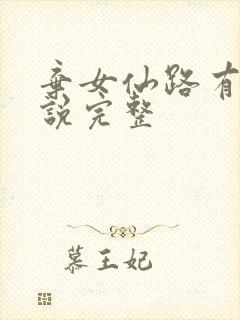 弃女仙路有
說完整
慕王妃